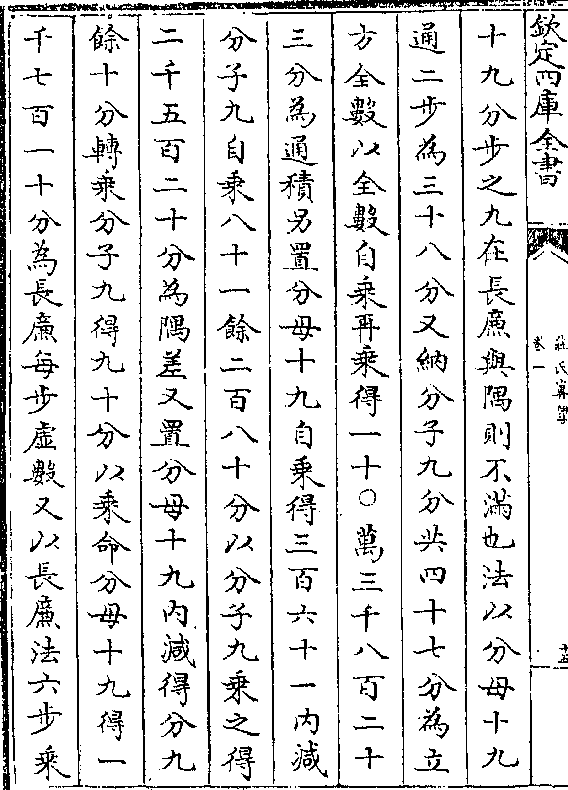 欽定四庫全書
莊氏算學
卷一
十九分步之九在長廉與隅則不滿也法以分母十九
通二步為三十八分又納分子九分共四十七分為立
方全數以全數自乘再乘得一十○萬三千八百二十
三分為通積另置分母十九自乘得三百六十一內減
分子九自乘八十一餘二百八十分以分子九乘之得
二千五百二十分為隅差又置分母十九內減得分九
餘十分轉乘分子九得九十分以乘命分母十九得一
千七百一十分為長廉每步虛數又以長廉法六步乘